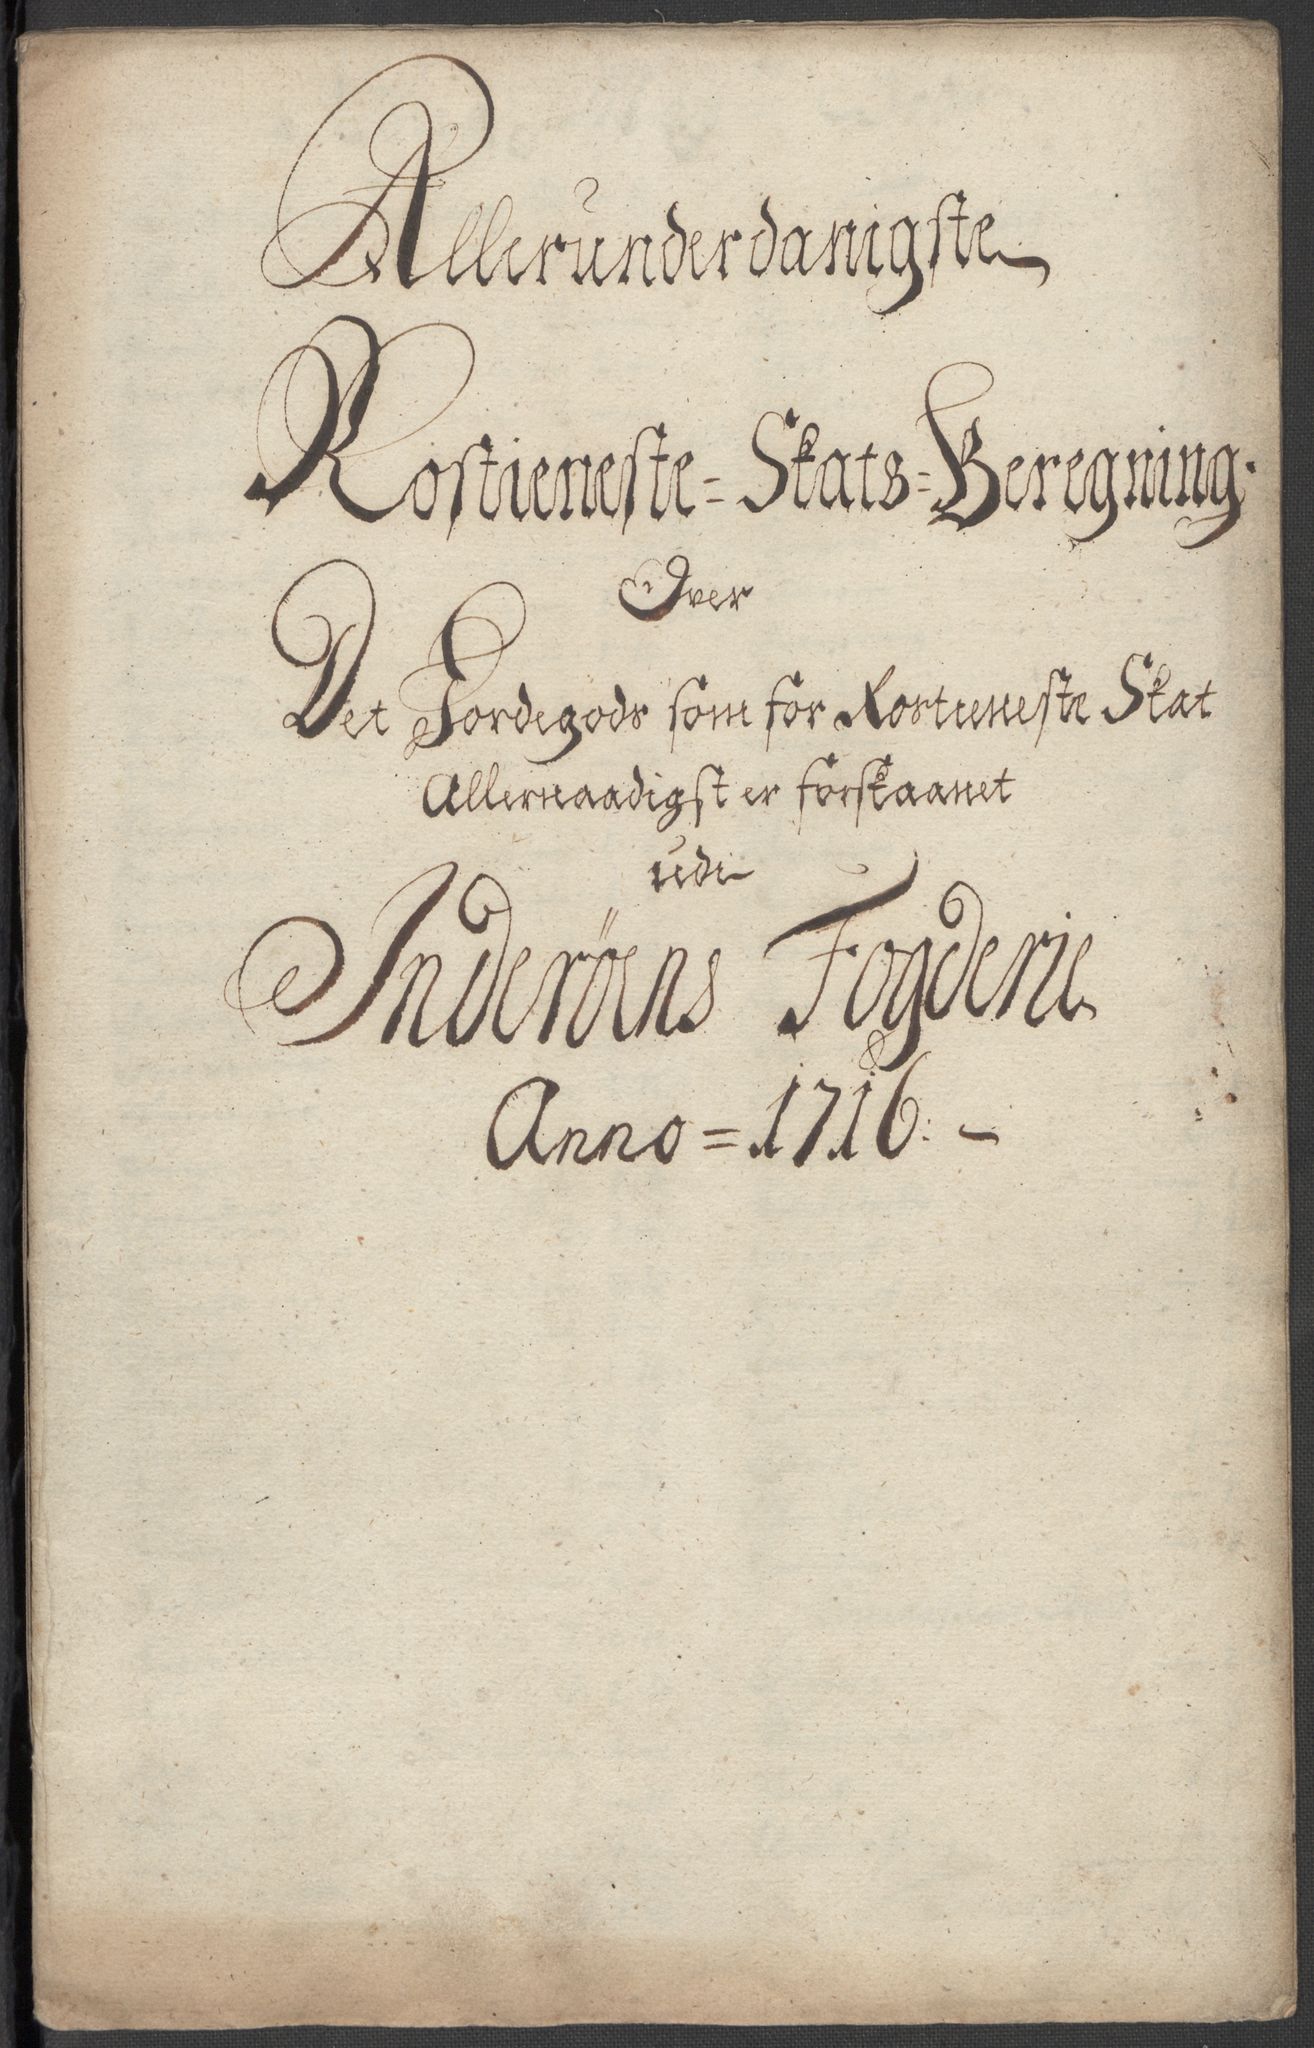 Allerunderdanigste
Rostieneste = Skats = Beregning.
Over
Det Jordegods som for Rostieneste Skat
Allernaadigst er forskaanet
udi
Inderöens Fogderie
Anno = 1716. –